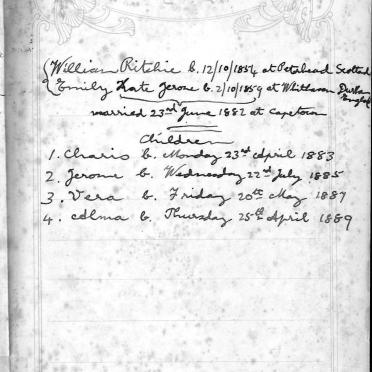 William Ritchie b. 12/10/1854 at Peterhead Scotland
& Emily Kate Jerome b. 2/10/1859 at Whithaven Durban England
married 23rd June 1882 at Capetown
Children
1. Charis b. Monday 23rd April 1883
2. Jerome b. Wednesday 22nd July 1885
3. Vera b. Friday 20th May 1887
4. Alma b. Thursday 25th April 1889